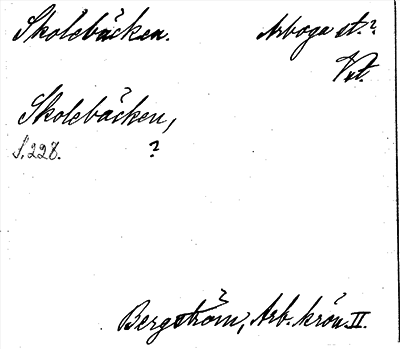 Skolebäcken. Arboga st.?
Vstm.
Skolebäcken,
S. 228. ?
Bergström, Arb. krön. II.